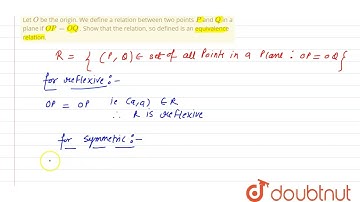 Let O be the origin. We define a relation between two points P and Q in a
plane if OP = OQ . Show that the relation, so defined is an equivalence
relation.
R = { (P, Q) ∈ set of all Points in a Plane : OP = OQ }
for reflexive :-
OP = OP ie (a,a) ∈ R
∴ R is reflexive
for symmetric :-
doubtnut